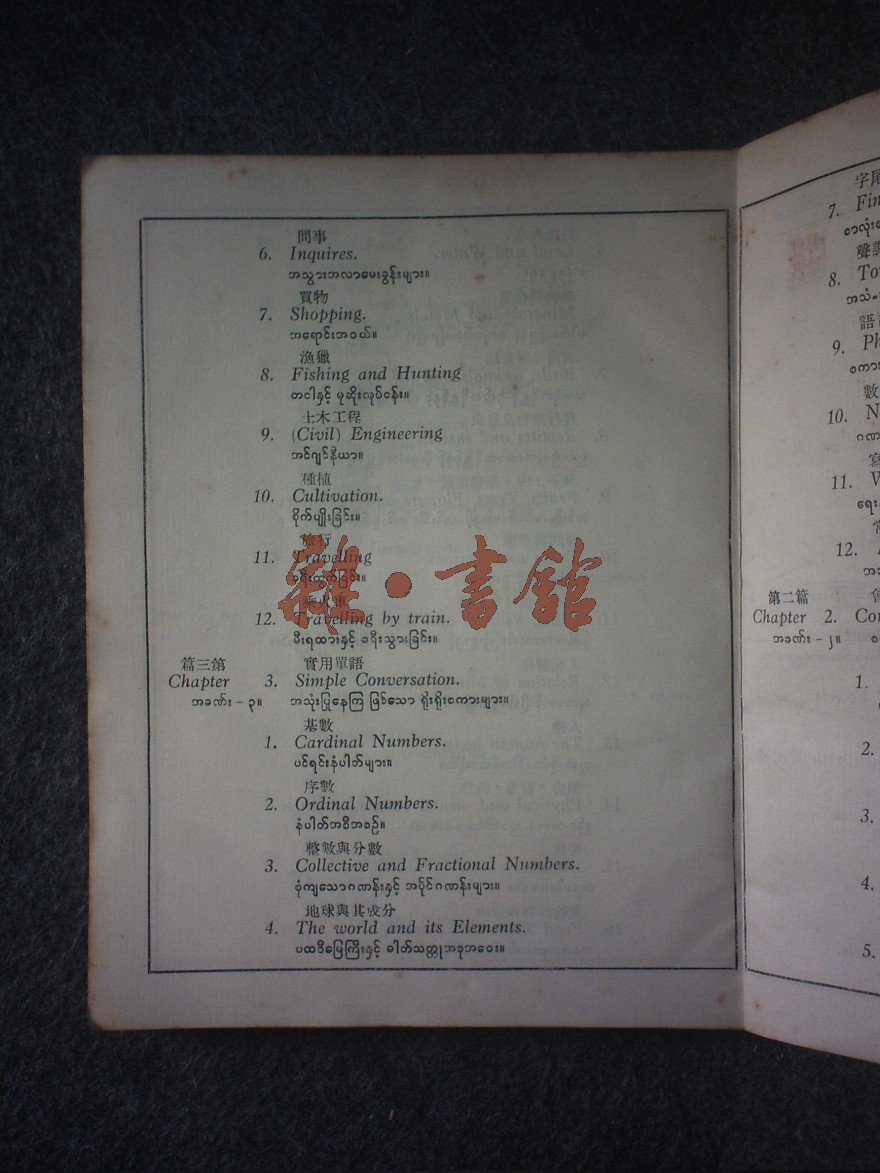 問事
6. Inquires.
အသွားအလာမေးခွန်းများ။
買物
7. Shopping.
အရောင်းအဝယ်။
漁獵
8. Fishing and Hunting
တငါနှင့် မုဆိုးလုပ်ငန်း။
土木工程
9. (Civil) Engineering
အင်ဂျင်နီယာ။
種植
10. Cultivation.
စိုက်ပျိုးခြင်း။
旅行
11. Travelling
ခရီးထွက်ခြင်း။
乘火車
12. Travelling by train.
မီးရထားနှင့် ခရီးသွားခြင်း။
雜·書館
篇三第 實用單語
Chapter 3. Simple Conversation.
အခဏ်း - ၃။ အသုံးပြုနေကြ ဖြစ်သော ရိုးရိုးစကားများ။
基數
1. Cardinal Numbers.
ပင်ရင်းနံပါတ်များ။
序數
2. Ordinal Numbers.
နံပါတ်အစီအစဉ်။
整數與分數
3. Collective and Fractional Numbers.
စုံကျသောဂဏန်းနှင့် အပိုင်ဂဏန်းများ။
地球與其成分
4. The world and its Elements.
ပထဝီမြေကြီးနှင့် ဓါတ်သတ္တုအစုအဝေး။
字尾
7.
聲調
8.
အသံ
9.
စကား
數
10.
ဂဏ
11.
ရေး
12.
第二篇
Chapter 2.
အခဏ်း - ၂။
1.
2.
3.
4.
5.